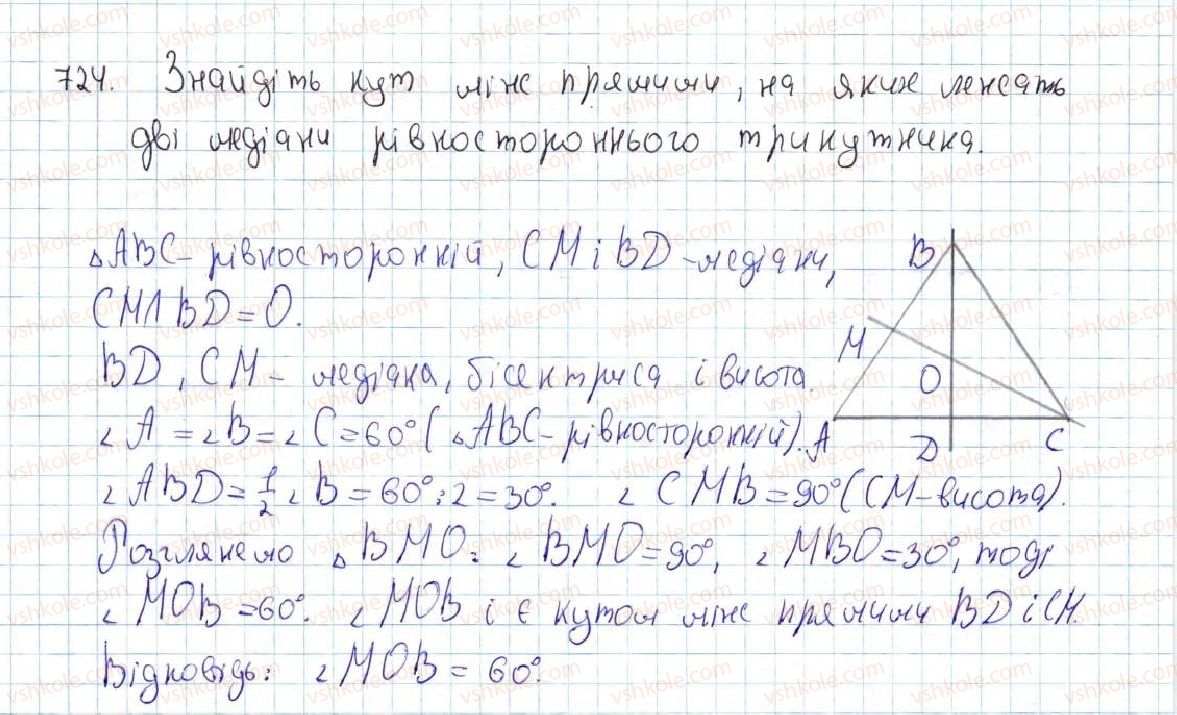 724. Знайдіть кут між прямими, на яких лежать
дві медіани рівностороннього трикутника.
△ABC - рівносторонній, CM і BD - медіани,
CM∩BD=O.
BD, CM - медіана, бісектриса і висота.
∠A = ∠B = ∠C = 60° (△ABC - рівносторонній).
∠ABD = 1/2 ∠B = 60° : 2 = 30°. ∠CMB = 90° (CM - висота).
Розглянемо △BMO: ∠BMO = 90°, ∠MBO = 30°, тоді
∠MOB = 60°. ∠MOB і є кутом між прямими BD і CM.
Відповідь: ∠MOB = 60°.
B
M
O
A
D
C
vshkole.com